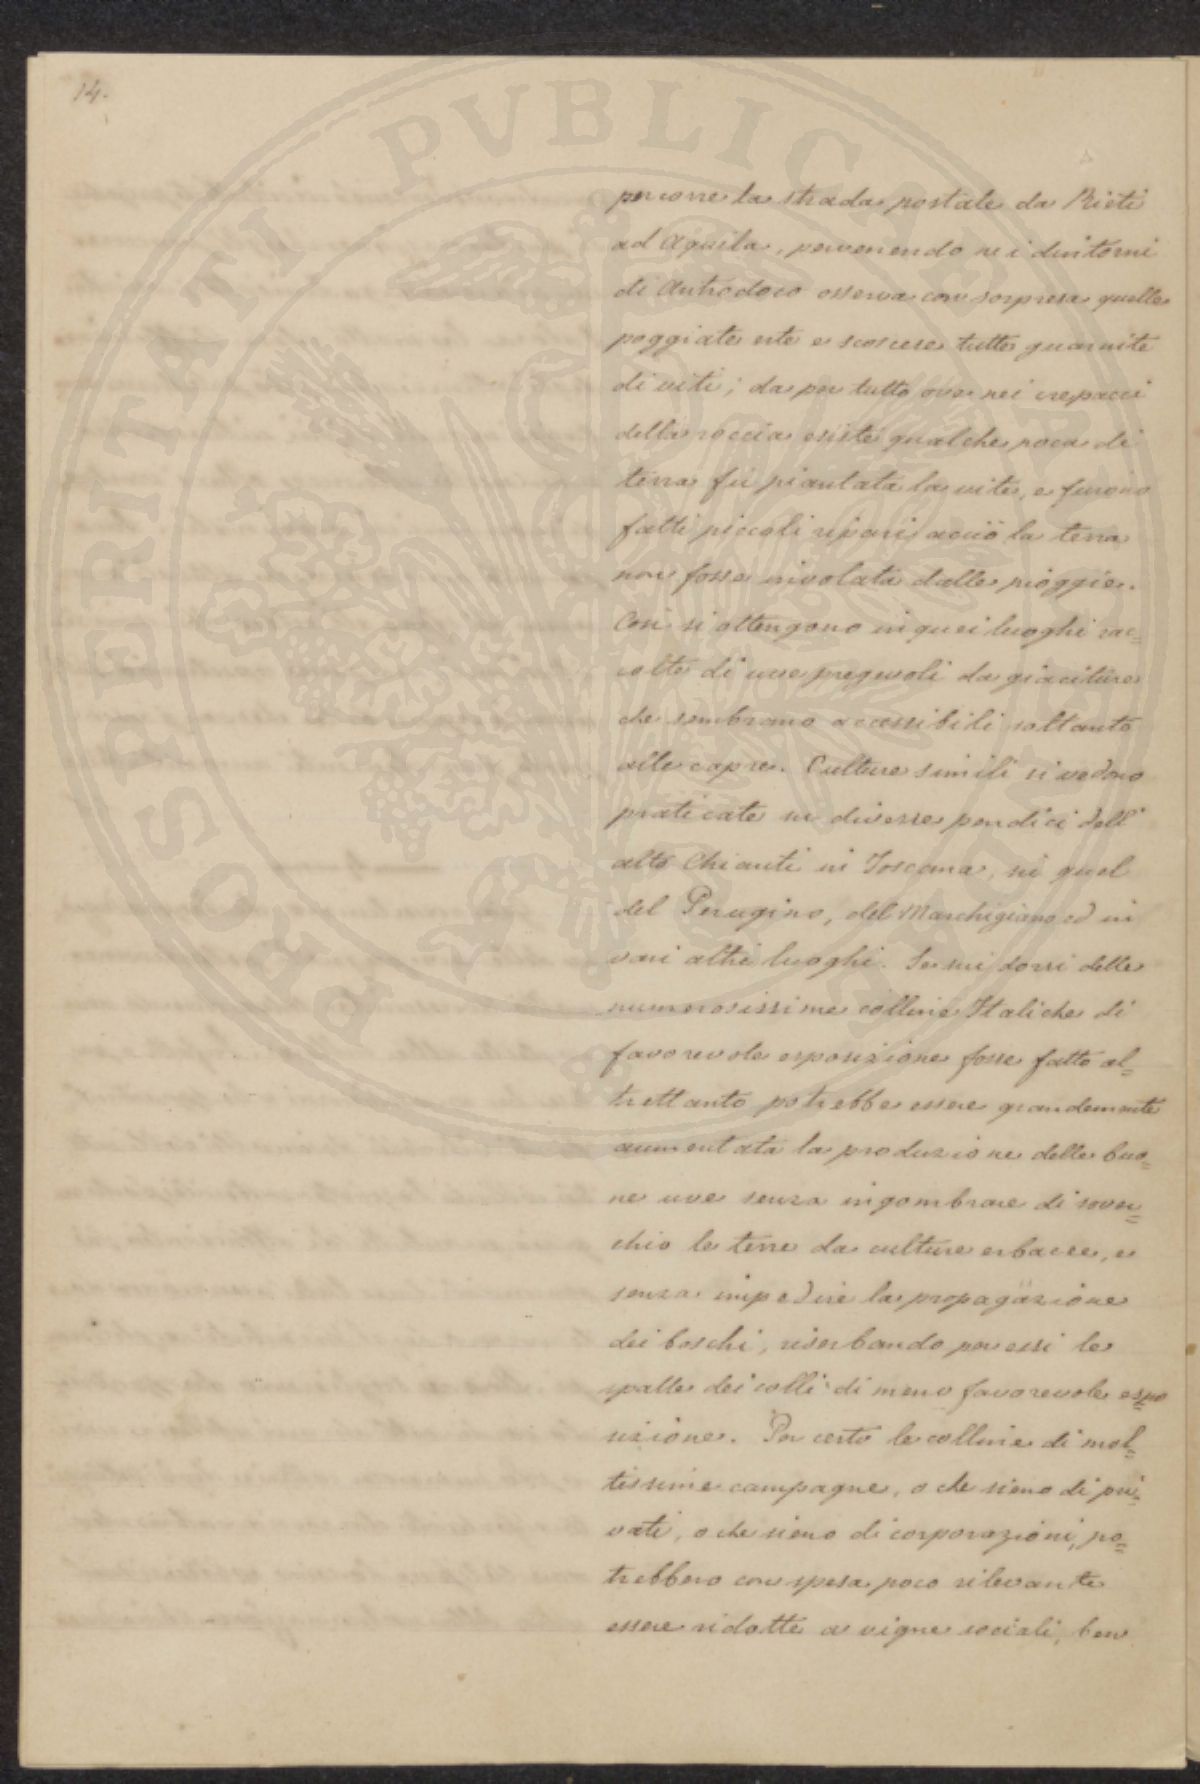 14.
percorre la strada postale da Rieti
ad Aquila, pervenendo ne i dintorni
di Antrodoco osserva con sorpresa quelle
poggiate erte e scoscese tutte guarnite
di viti; da per tutto ove nei crepacci
della roccia esiste qualche poca di
terra fù piantata la vite, e furono
fatti piccoli ripari acciò la terra
non fosse involata dalle pioggie.
Così si ottengono in quei luoghi rac=
colte di uve pregevoli da giaciture
che sembrano accessibili soltanto
alle capre. Culture simili si vedono
praticate in diverse pendici dell'
alto Chianti in Toscana, in quel
del Perugino, del Marchigiano ed in
vari altri luoghi. Se sui dorsi delle
numerosissime colline Italiche di
favorevole esposizione fosse fatto al=
trettanto potrebbe essere grandemente
aumentata la produzione delle buo=
ne uve senza ingombrare di sover=
chio le terre da culture erbacee, e
senza impedire la propagazione
dei boschi, riserbando per essi le
spalle dei colli di meno favorevole espo=
sizione. Per certo le colline di mol=
tissime campagne, o che sieno di pri=
vati, o che sieno di corporazioni, po=
trebbero con spesa poco rilevante
essere ridotte a vigne sociali, ben
PROSPERITATI PVBLICAE